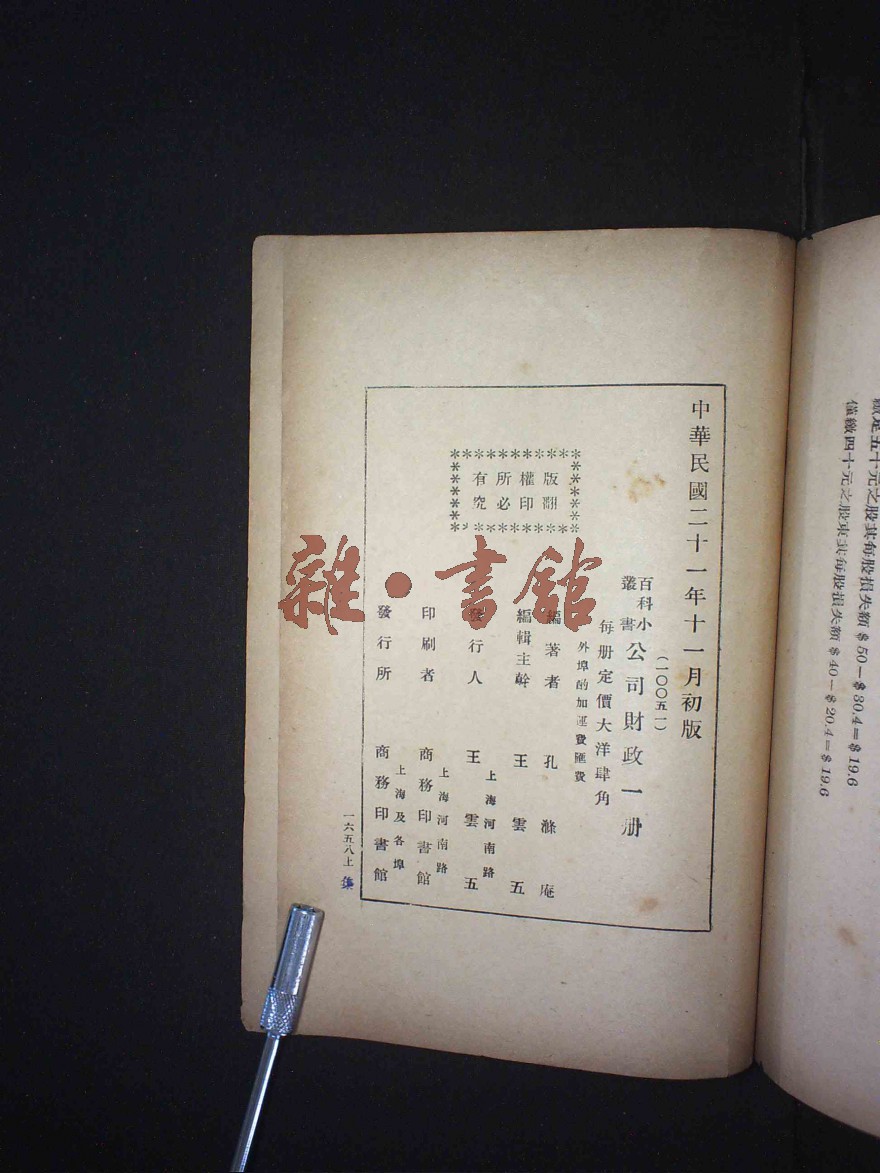 繳足五十元之股東每股損失額 $ 50 — $ 30.4 = $ 19.6
僅繳四十元之股東其每股損失額 $ 40 — $ 20.4 = $ 19.6
中華民國二十一年十一月初版
(一〇〇五一)
百科小叢書
公司財政一册
每册定價大洋肆角
外埠酌加運費匯費
版權所有
翻印必究
編著者 孔滌庵
編輯主幹 王雲五
發行人 王雲五
上海河南路
印刷者 商務印書館
上海河南路
發行所 商務印書館
上海及各埠
一六五八上
雜·書館